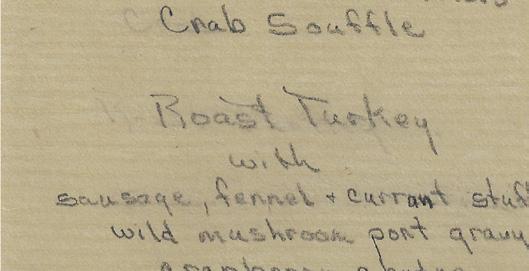 Crab Souffle
Roast Turkey
with
sausage, fennel + currant stuf
wild mushroom port gravy